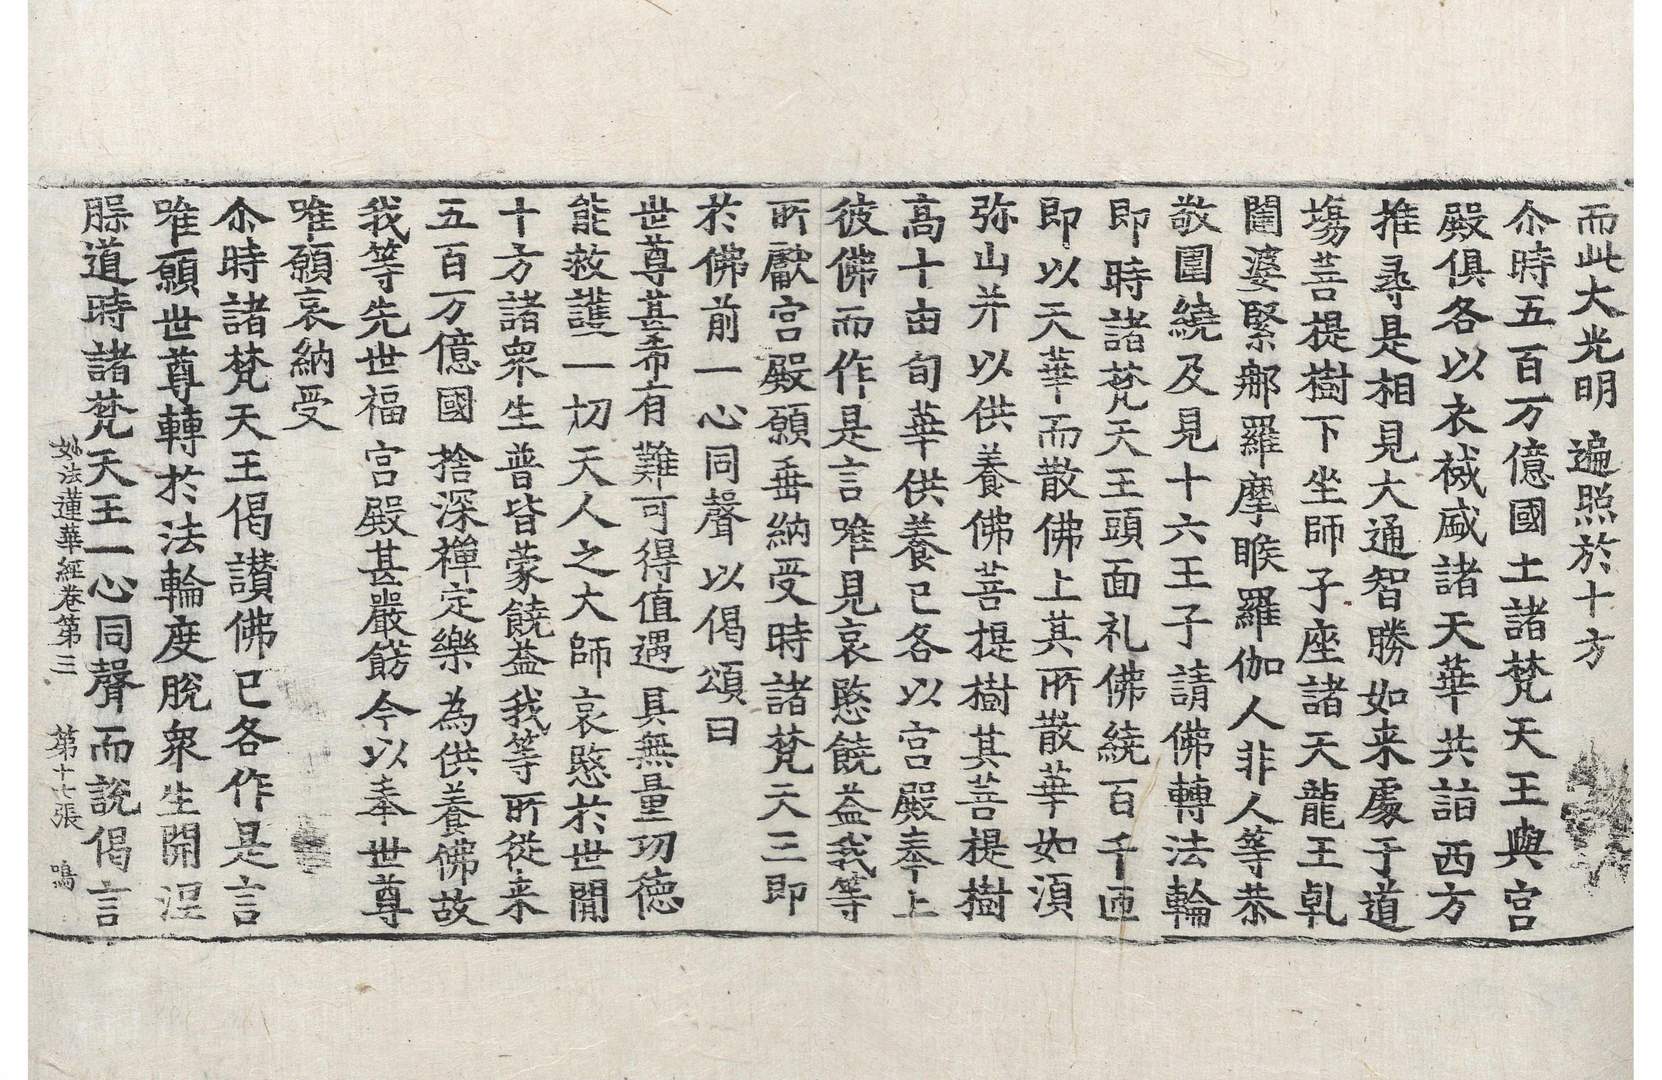 而此大光明 遍照於十方
尒時五百万億國土諸梵天王與宮
殿俱各以衣裓盛諸天華共詣西方
推尋是相見大通智勝如来處于道
場菩提樹下坐師子座諸天龍王乹
闥婆緊那羅摩睺羅伽人非人等恭
敬圍繞及見十六王子請佛轉法輪
即時諸梵天王頭面礼佛繞百千匝
即以天華而散佛上其所散華如湏
弥山并以供養佛菩提樹其菩提樹
高十由旬華供養已各以宮殿奉上
彼佛而作是言唯見哀愍饒益我等
所獻宮殿願垂納受時諸梵天王即
於佛前一心同聲以偈頌曰
世尊甚希有 難可得值遇 具無量功德
能救護一切 天人之大師 哀愍於世間
十方諸衆生 普皆蒙饒益 我等所從来
五百万億國 捨深禪定樂 為供養佛故
我等先世福 宮殿甚嚴飾 今以奉世尊
唯願哀納受
尒時諸梵天王偈讃佛已各作是言
唯願世尊轉於法輪度脫衆生開涅
槃道時諸梵天王一心同聲而說偈言
妙法蓮華經卷第三 第十七張 鳴